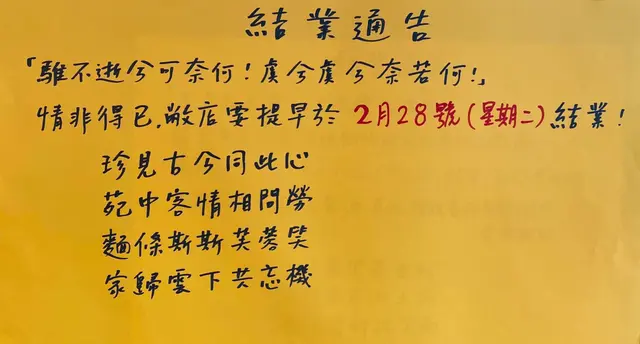 結業通告
「騅不逝兮可奈何！虞兮虞兮奈若何！」
情非得已，敝店要提早於 2月28號(星期二)結業！
珍見古今同此心
苑中客情相問勞
麵條斯斯芙蓉笑
家歸雲下共忘機